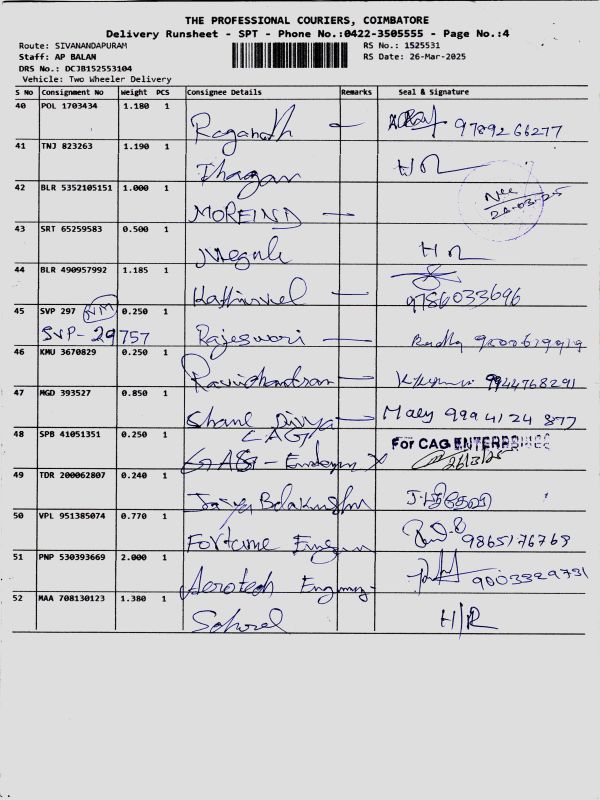 THE PROFESSIONAL COURIERS, COIMBATORE
Delivery Runsheet - SPT - Phone No.:0422-3505555 - Page No.:4
Route: SIVANANDAPURAM RS No.: 1525531
Staff: AP BALAN RS Date: 26-Mar-2025
DRS No.: DCJB152553104
Vehicle: Two Wheeler Delivery
S No Consignment No Weight PCS Consignee Details Remarks Seal & Signature
40 POL 1703434 1.180 1 Raganath 9789266277
41 TNJ 823263 1.190 1 Thagan
42 BLR 5352105151 1.000 1 MOREIND
43 SRT 65259583 0.500 1
44 BLR 490957992 1.185 1 Kathirvel 9786033696
45 SVP 297 NM 0.250 1 Rajeswari Radha
SVP-29757
46 KMU 3670829 0.250 1 Ravichandran 9944768291
47 MGD 393527 0.850 1 Divya 9994124877
48 SPB 41051351 0.250 1 CAG For CAG ENTERPRISES
26/3/25
49 TDR 200062807 0.240 1 Jaya Balakrishn
50 VPL 951385074 0.770 1 Fortune 9865176763
51 PNP 530393669 2.000 1 Aerotech 9003329731
52 MAA 708130123 1.380 1 H/R